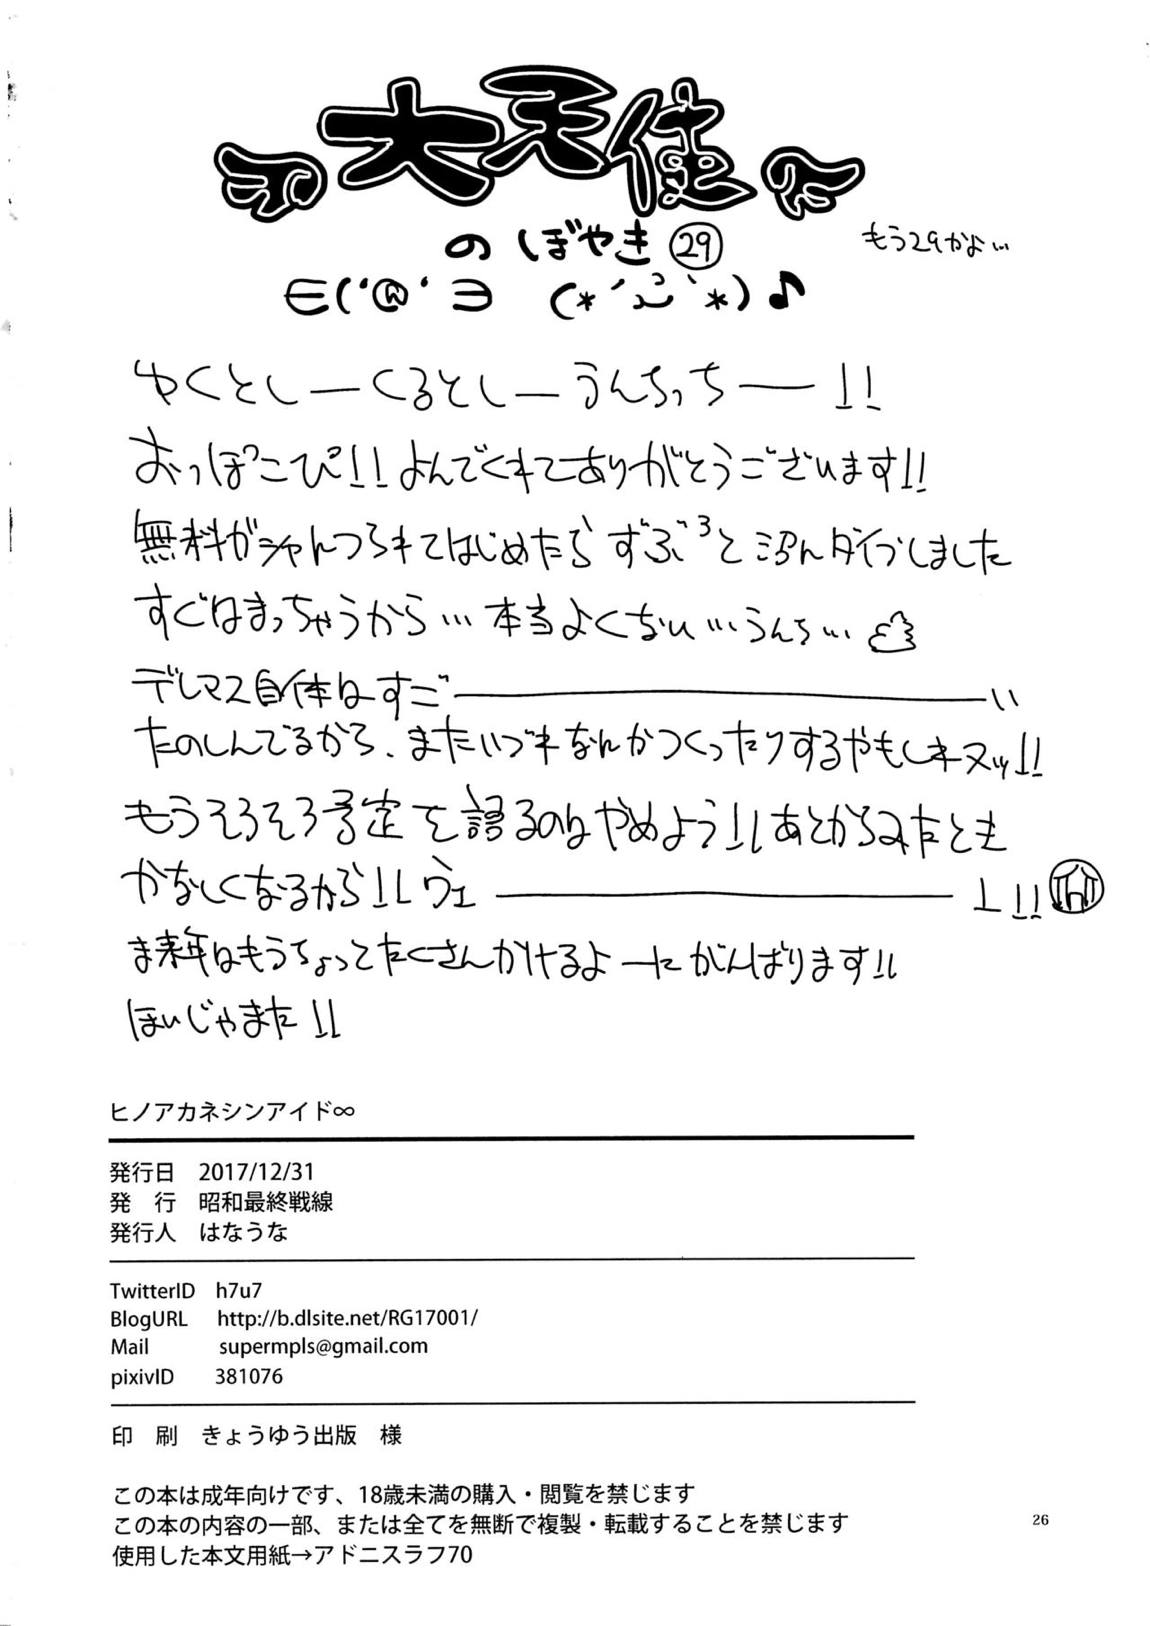 大天使
のぼやき㉙
もう29かよ…
∈('@'∋ (*´ω`*)♪
ゆくとしーくるとしーうんちっちー!!
おっぽこぴ!!よんでくれてありがとうございます!!
無料ガシャんつられてはじめたらずぶ³と沼んダイブしました
すぐはまっちゃうから…本当よくない…うんち…
デレマス自体はすご――――い
たのしんでるから、またいづれなんかつくったりするやもしれヌッ!!
もうそろそろ予定を語るのはやめよう!!あとからみたとき
かなしくなるから!!ヴェ――――!!
ま来年はもうちょってたくさんかけるよーにがんばります!!
ほいじゃまた!!
ヒノアカネシンアイド∞
発行日 2017/12/31
発 行 昭和最終戦線
発行人 はなうな
TwitterID h7u7
BlogURL http://b.dlsite.net/RG17001/
Mail supermpls@gmail.com
pixivID 381076
印 刷 きょうゆう出版 様
この本は成年向けです、18歳未満の購入・閲覧を禁じます
この本の内容の一部、または全てを無断で複製・転載することを禁じます
使用した本文用紙→アドニスラフ70
26